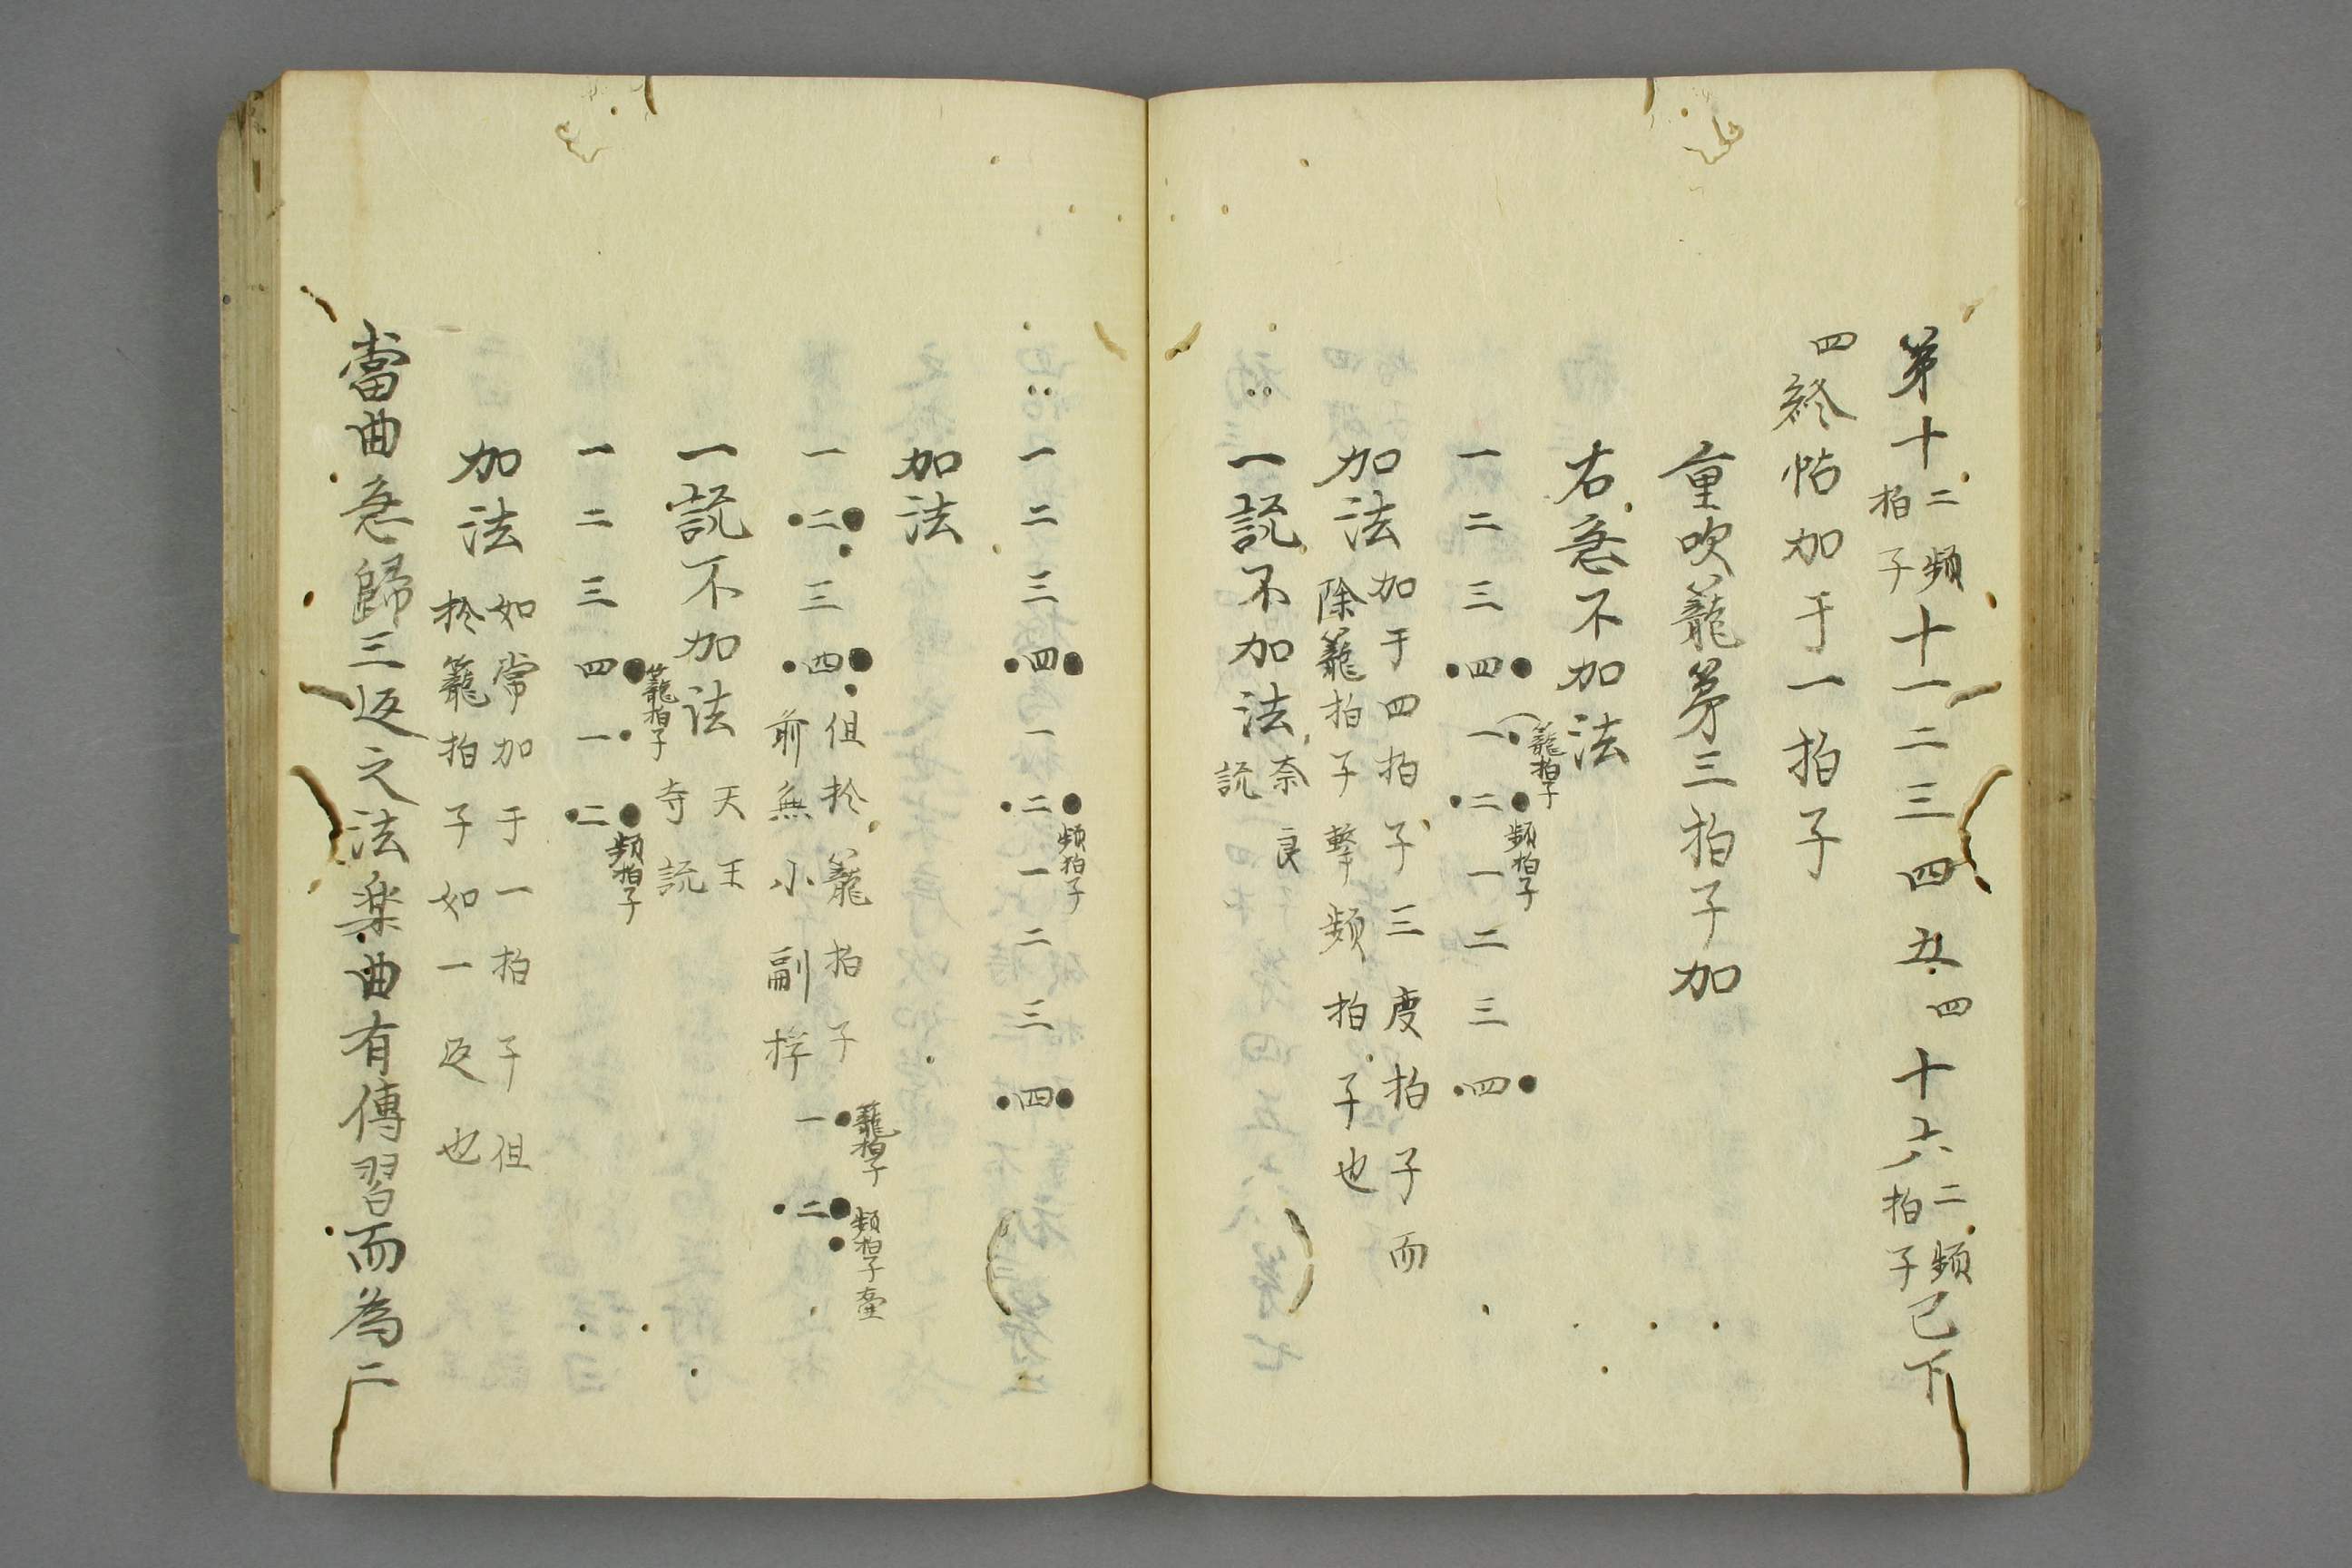 第十二頻拍子十一二三四五四十六二頻拍子已下
四終帖加于一拍子
重吹籠第三拍子加
右急不加法
一二三四一籠拍子二頻拍子一二三四
加法加于四拍子三度拍子而
除籠拍子撃頻拍子也
一説不加法奈良説
一二三四一二頻拍子一二三四
加法
一二三四但於籠拍子
前無小副桴一籠拍子二頻拍子
一説不加法天王寺説
一二三四籠拍子一二頻拍子
加法如常加于一拍子但
於籠拍子如一返也
當曲急歸三返之法楽曲有傳習而為二